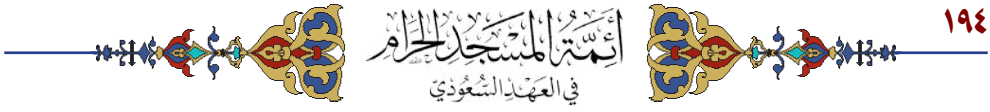 ١٩٤
أئمة المسجد الحرام
في العهد السعودي